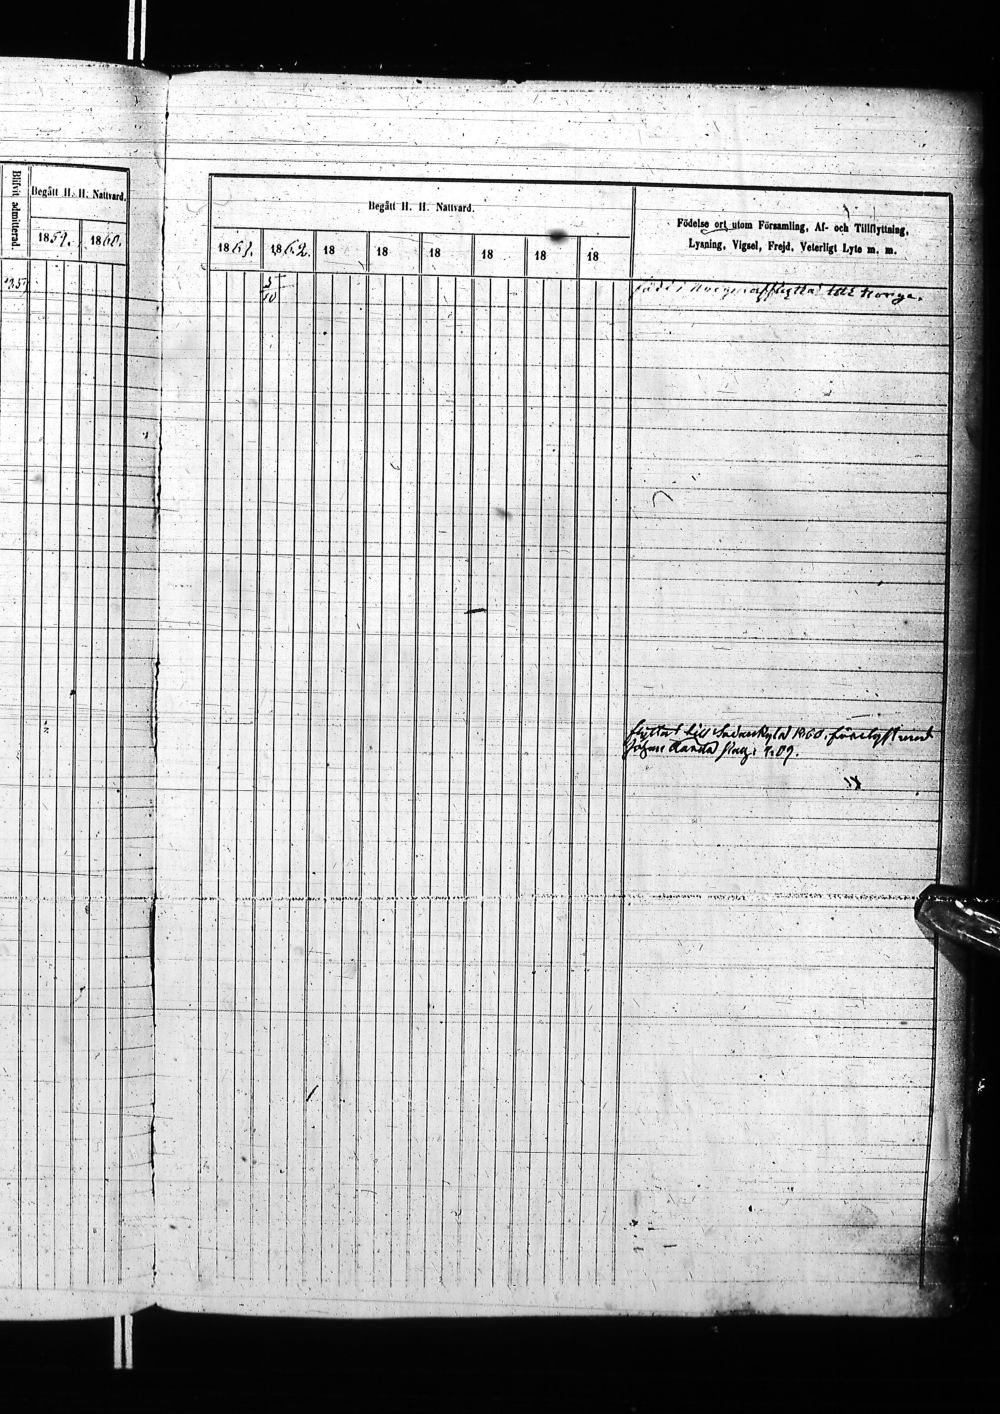 Blifvit admitterad.
Begått H. H. Nattvard.
1859. 1860.
Begått H. H. Nattvard.
1861. 1862. 18 18 18 18 18 18
Födelse ort utom Församling, Af- och Tillflyttning,
Lysning, Vigsel, Frejd, Veterligt Lyte m. m.
5/10
född i till Norge.
flyttat till Sodankylä 1860,
Johan pag: